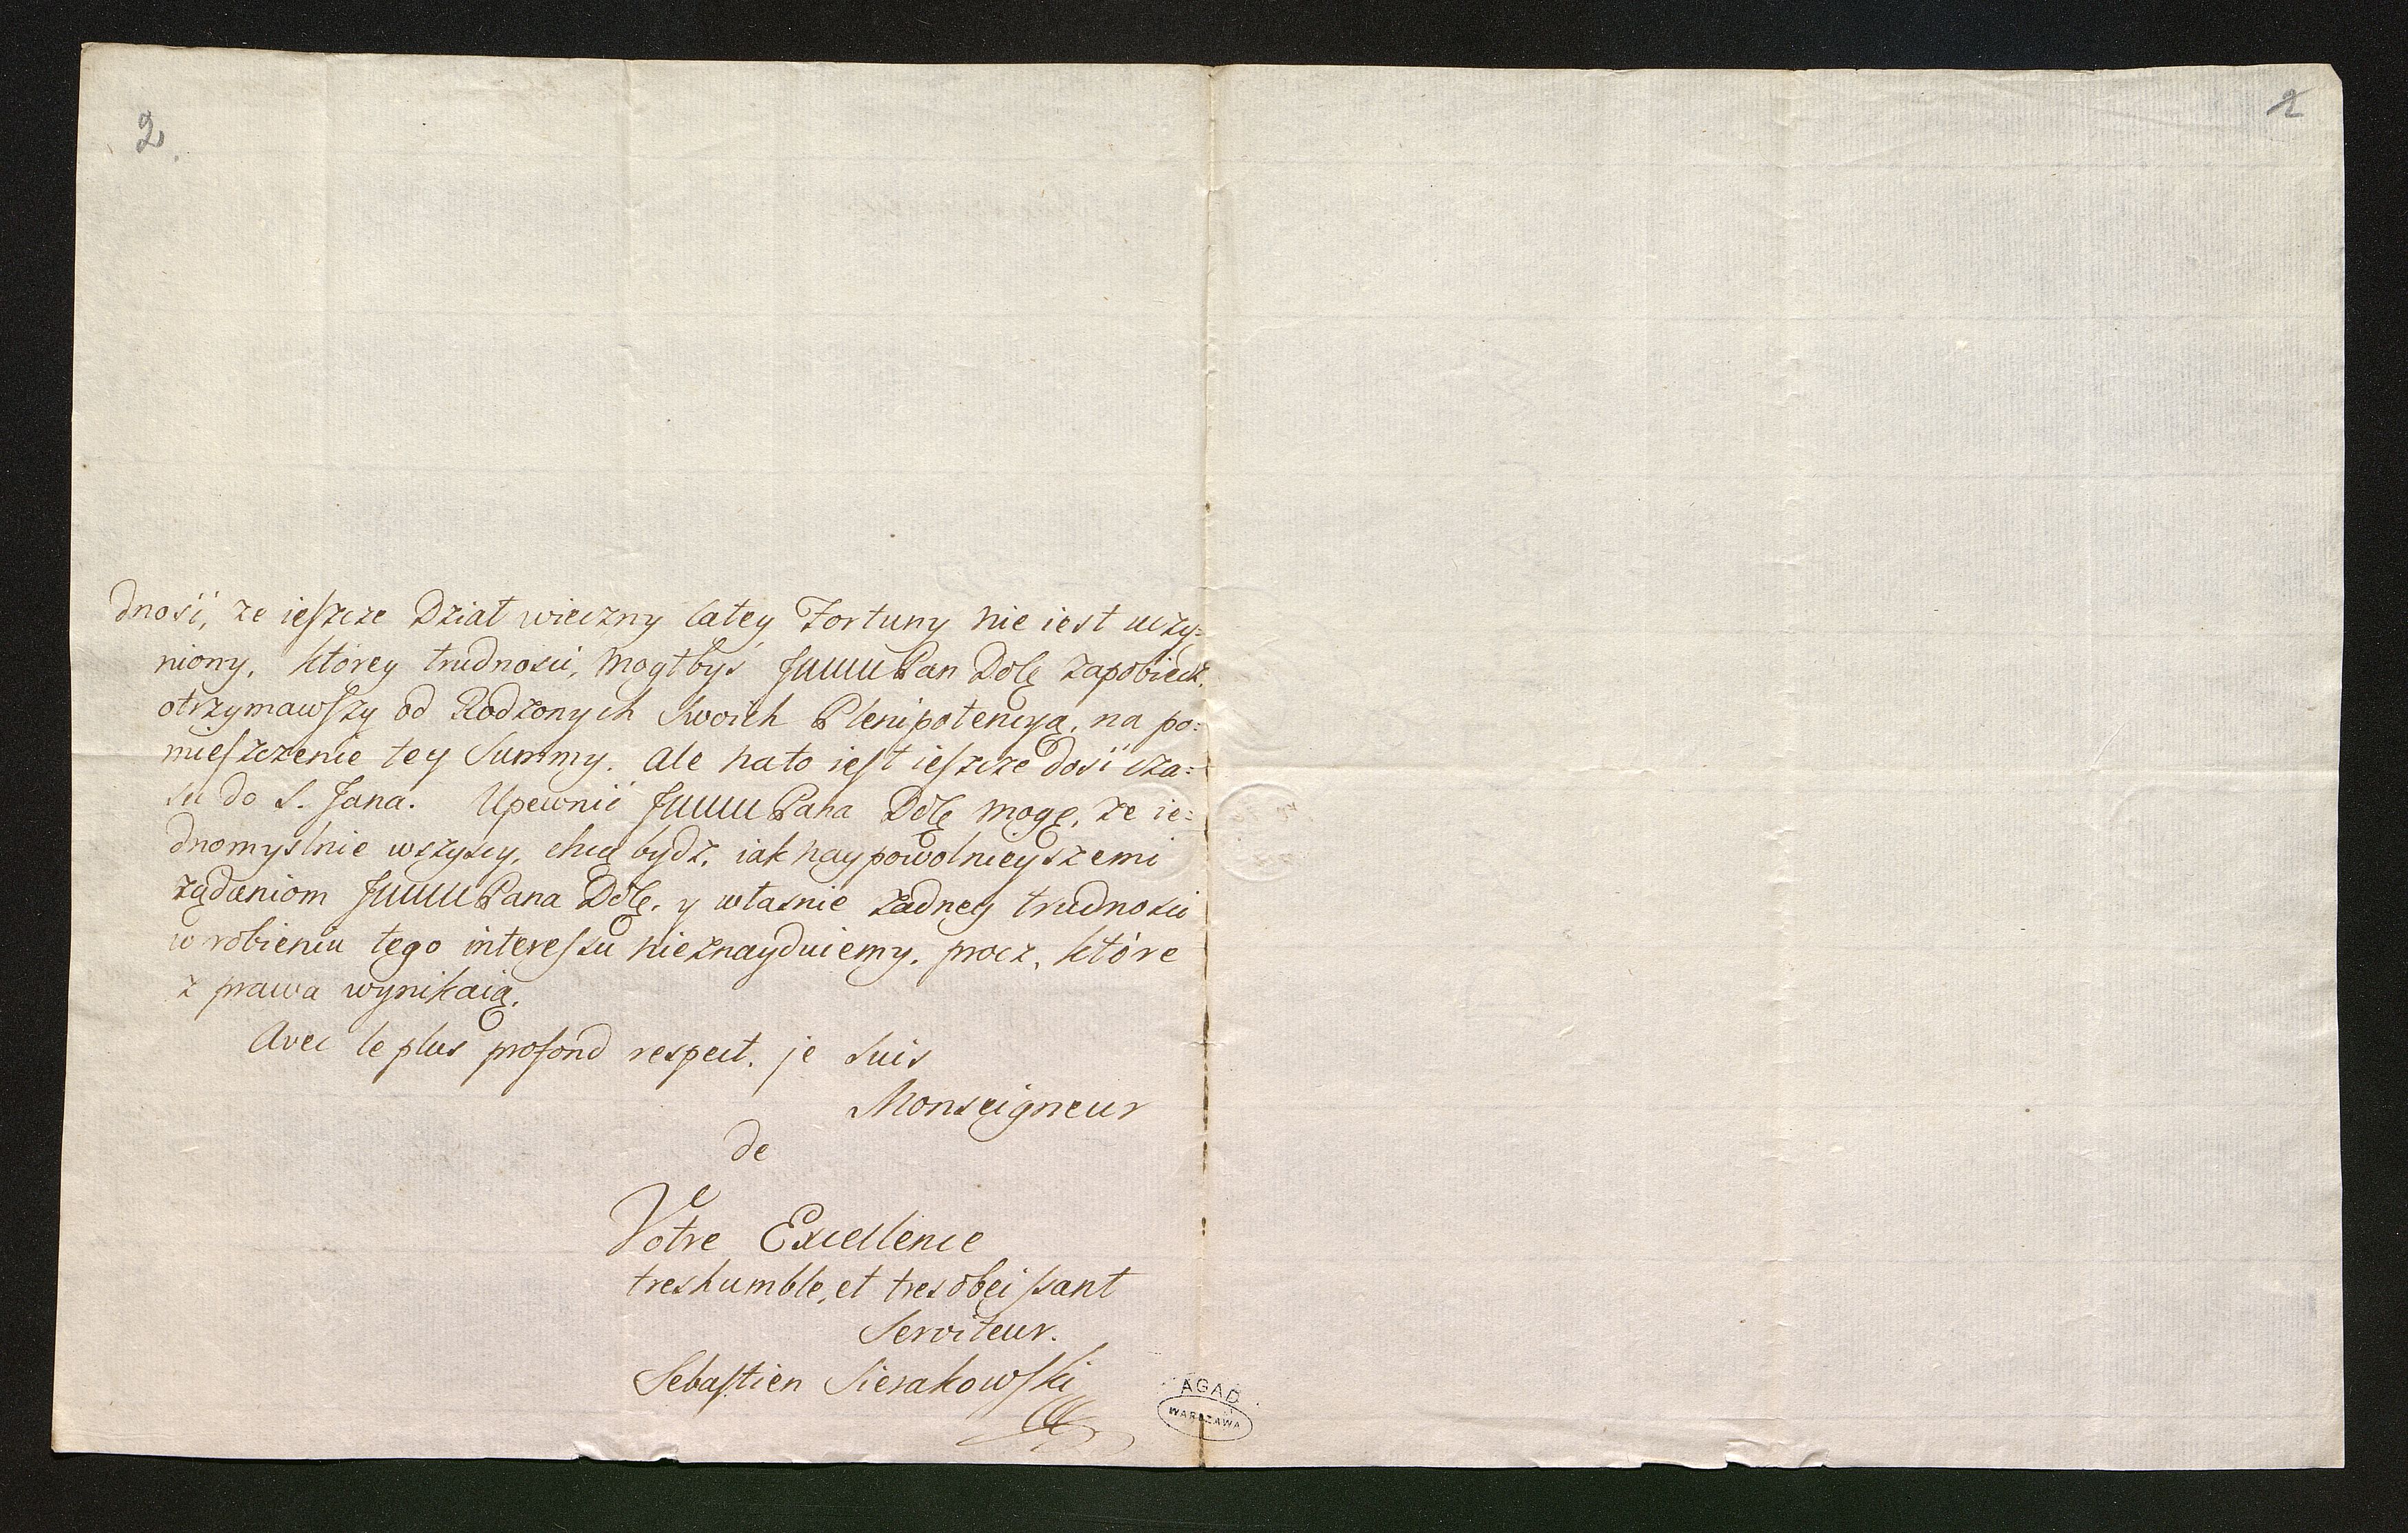 2.
2
dność, ze ieszcze Dział wieczny całey Fortuny nie iest uczy=
niony, którey trudności, mogłbyś JWWPan Dob. zapobiedz,
otrzymawszy od Rodzonych swoich Plenipotencyą, na po=
mieszczenie tey Summy. Ale na to iest ieszcze dość cza=
su do S. Jana. Upewnić JWWPana Dob. mogę, ze ie=
dnomyslnie wszyscy, chcą bydz, iak naypowolnieyszemi
ządaniom JWWPana Dob. y własnie zadney trudności
w robieniu tego interessu nieznayduiemy, procz, które
z prawa wynikaią.
Avec le plus profond respect, je suis
Monseigneur
de
Votre Excellence
tres humble, et tres obeissant
Serviteur.
Sebastien Sierakowski
AGAD
WARSZAWA